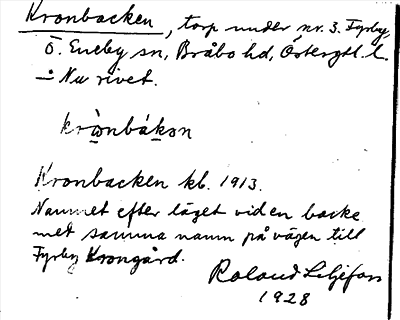 Kronbacken, torp under nr. 3. Fyrby,
Ö. Eneby sn, Bråbo hd, Östergtl. l.
— Nu rivet.
krònbákən
Kronbacken kb. 1913.
Namnet efter läget vid en backe
med samma namn på vägen till
Fyrby Krongård.
Roland Liljefors
1928